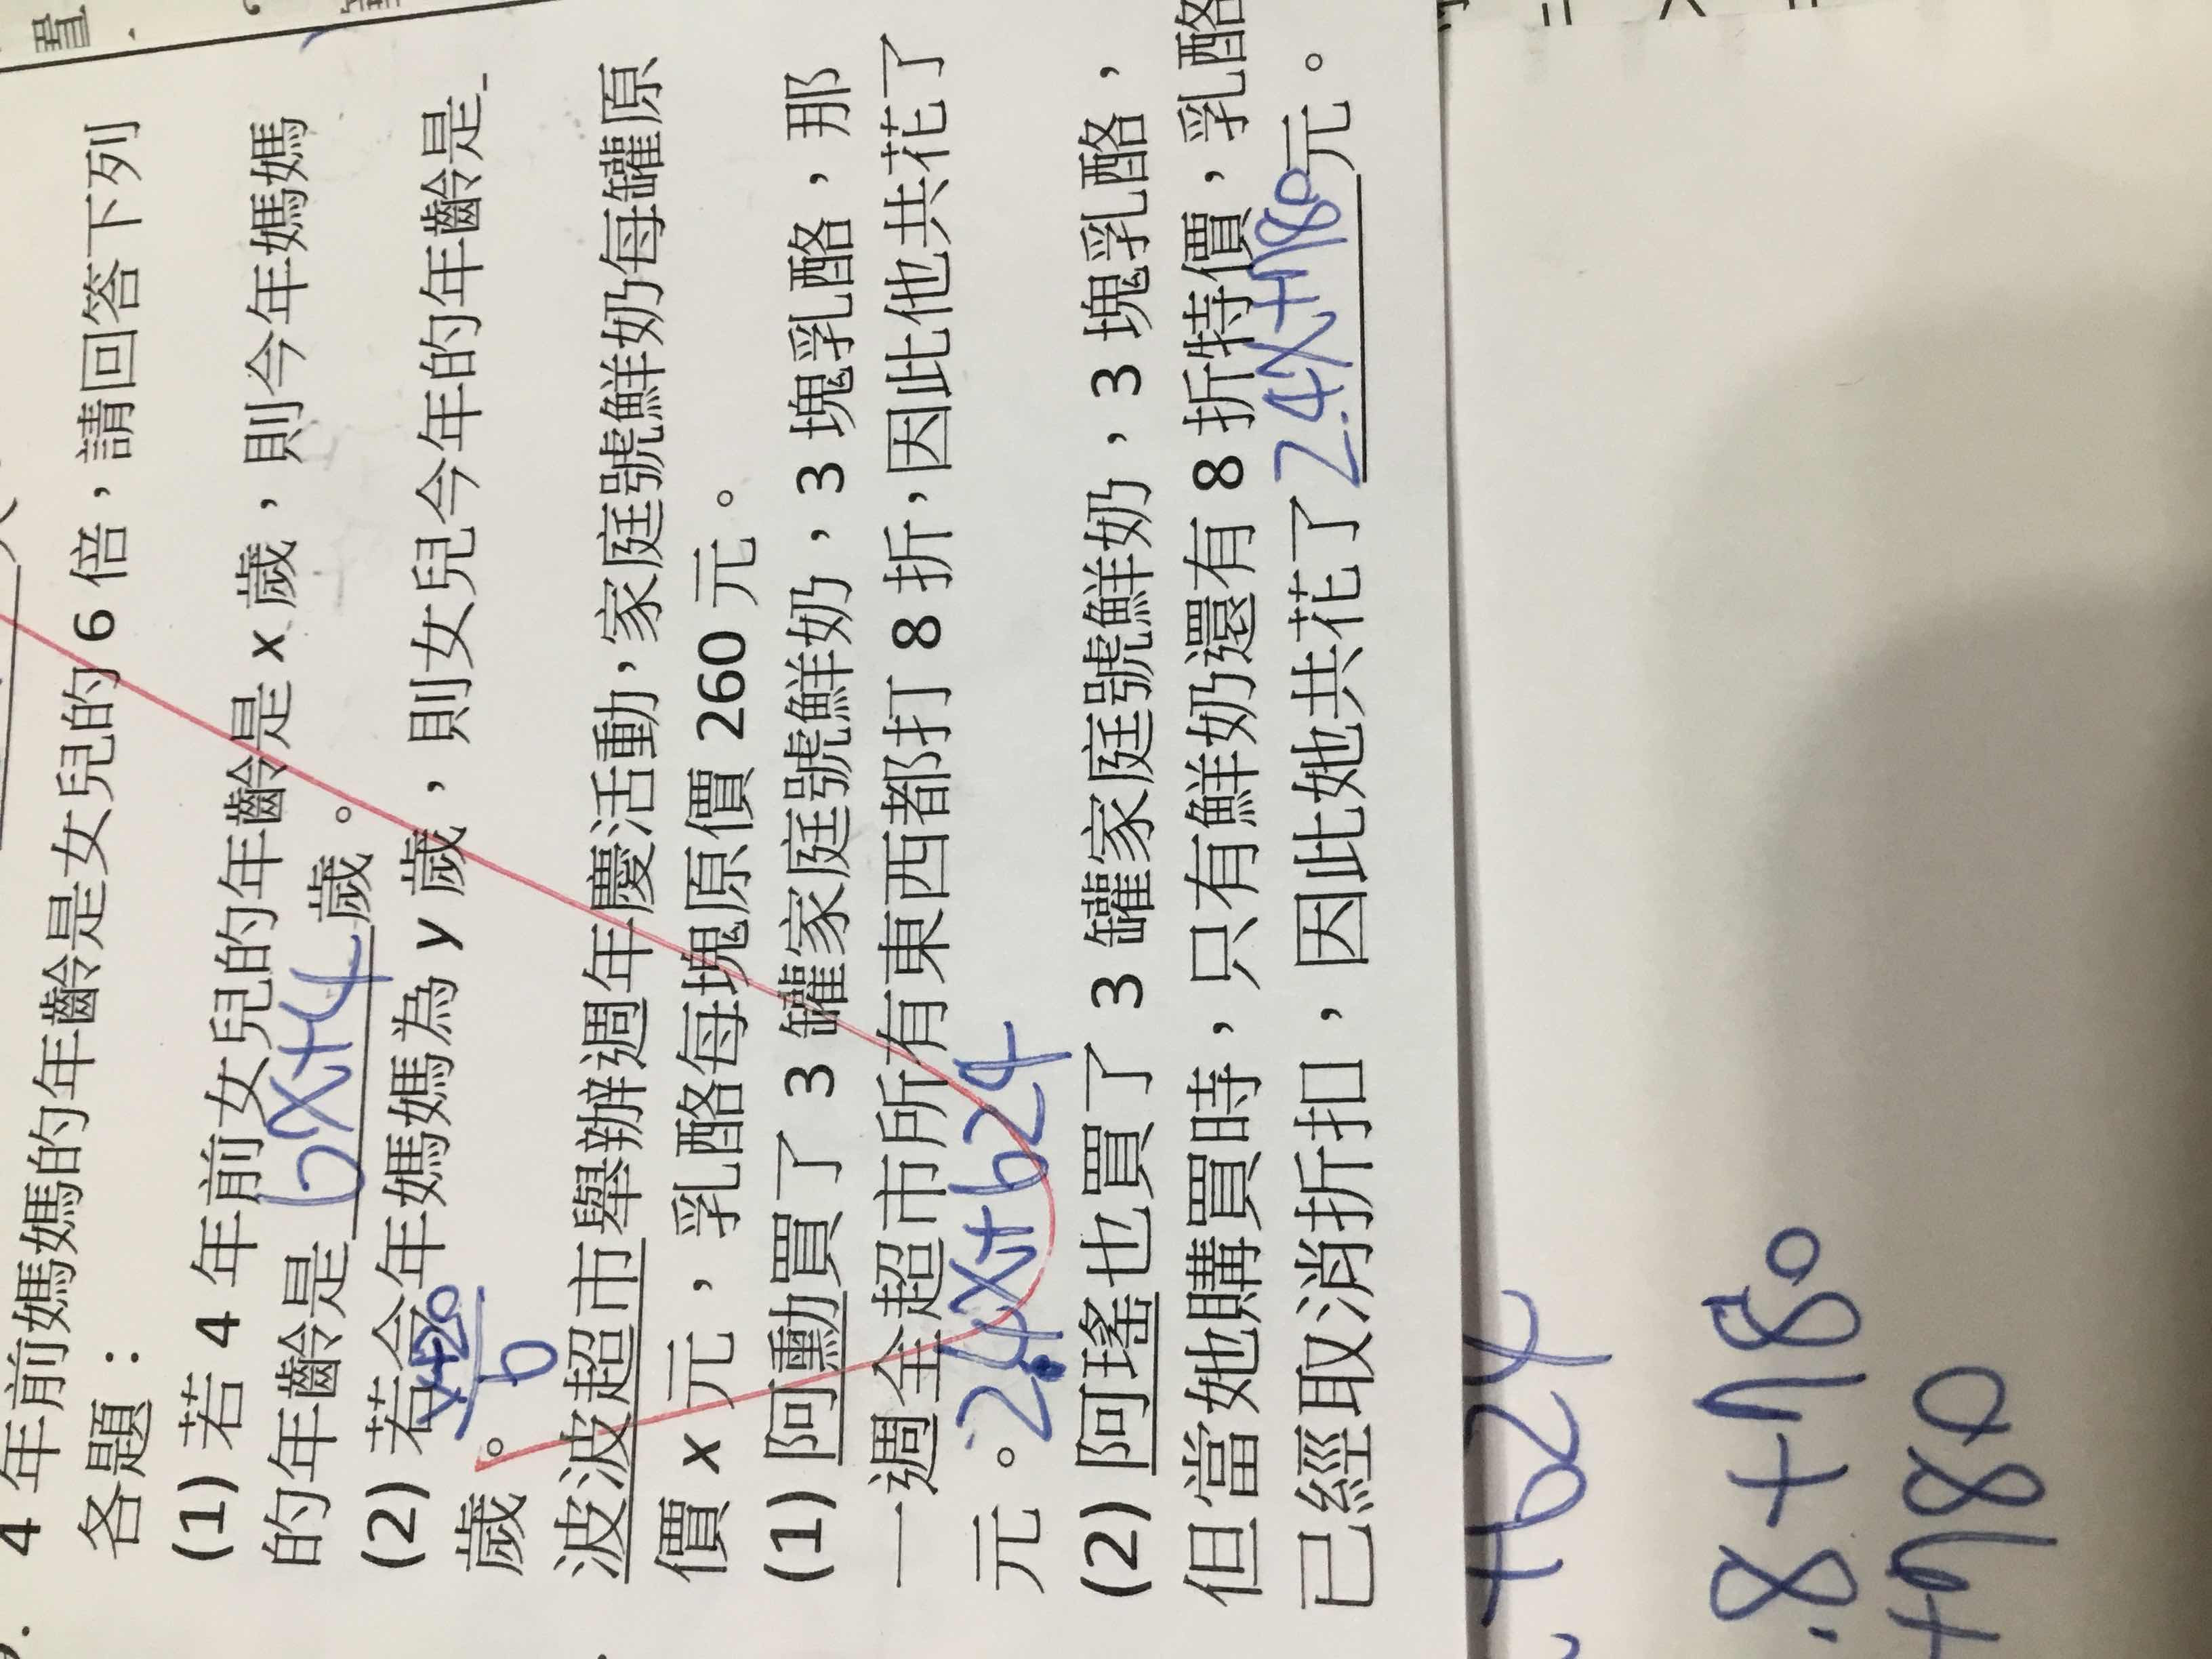 4 年前媽媽的年齡是女兒的 6 倍，請回答下列
各題：
(1) 若 4 年前女兒的年齡是 x 歲，則今年媽媽
的年齡是 6X+4 歲。
(2) 若今年媽媽為 y 歲，則女兒今年的年齡是
y+20
6
歲。
波波超市舉辦週年慶活動，家庭號鮮奶每罐原
價 x 元，乳酪每塊原價 260 元。
(1) 阿勳買了 3 罐家庭號鮮奶，3 塊乳酪，那
一週全超市所有東西都打 8 折，因此他共花了
元。2.4X+624
(2) 阿瑤也買了 3 罐家庭號鮮奶，3 塊乳酪，
但當她購買時，只有鮮奶還有 8 折特價，乳酪
已經取消折扣，因此她共花了 2.4X+780 元。
+624
.8+780
+780
置